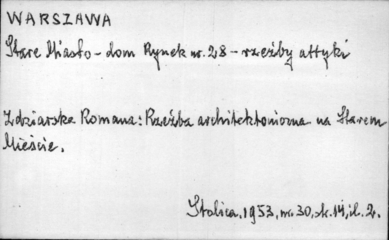 WARSZAWA
Stare Miasto - dom Rynek nr. 28 - rzeźby attyki
Zdziarska Romana: Rzeźba architektoniczna na Starem
Mieście.
Stolica, 1953, nr. 30, st. 14, il. 2.